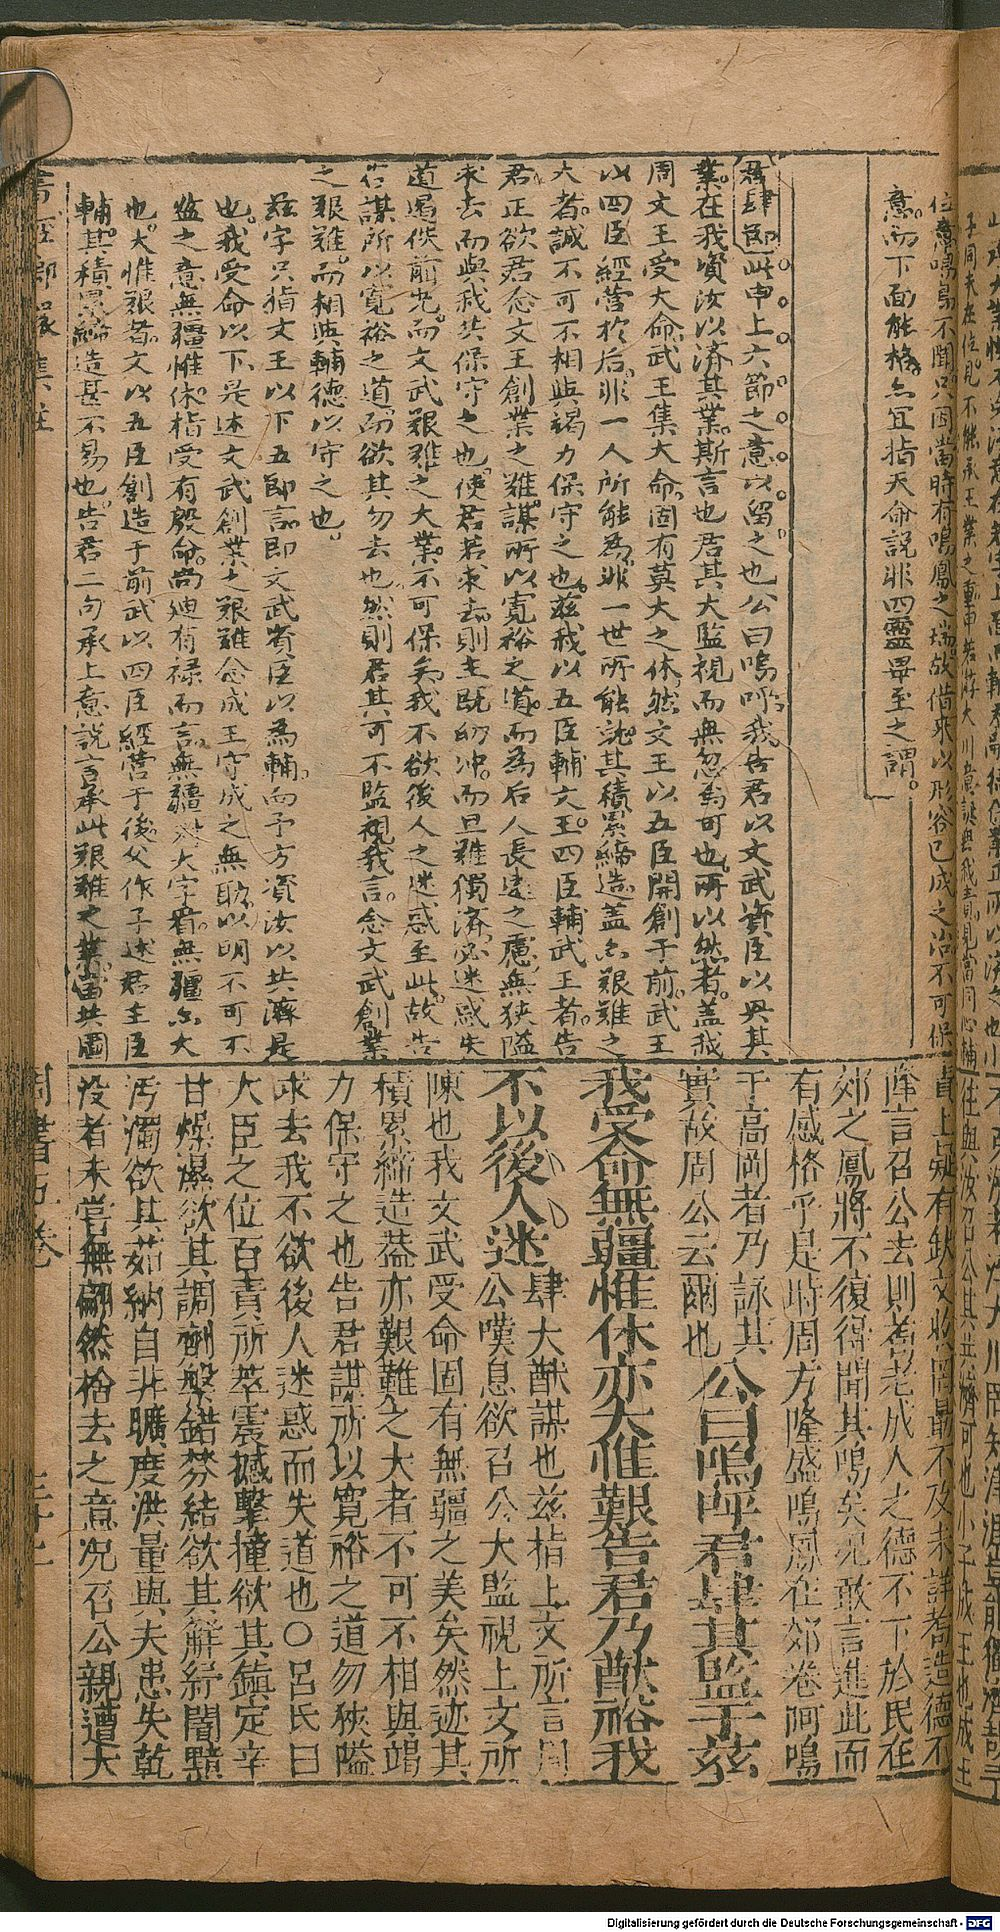 位意鳴鳥不聞只因當時有鳴鳳之瑞故借來以形容已成之治不可保
意而下面能格亦宜指天命說非四靈畢至之謂。
君肆節此申上六節之意以留之也公曰嗚呼我告君以文武資臣以畀其
業在我資汝以濟其業斯言也君其大監視而無忽焉可也所以然者蓋我
周文王受大命武王集大命固有莫大之休然文王以五臣開創于前武王
以四臣經營於后非一人所能為非一世所能就其積累締造蓋亦艱難之
大者誠不可不相與竭力保守之也茲我以五臣輔文王四臣輔武王者告
君正欲君念文王創業之難謀所以寬裕之道而為后人長遠之慮無狹隘
求去而與我共保守之也使君若求去則主既幼冲而旦難獨濟必迷惑失
道遏佚前光而文武艱難之大業不可保矣我不欲後人之迷惑至此故告
君謀所以寬裕之道而欲其勿去也然則君其可不監視我言念文武創業
之艱難而相與輔德以守之也。
茲字只指文王以下五節言即文武資臣以為輔而予方資汝以共濟是
也。我受命以下是述文武創業之艱難念成王守成之無助以明不可不
監之意無疆惟休指受有殷命尚迪有祿而言無疆與大字看無疆亦大
也。大惟艱者文以五臣創造于前武以四臣經營于後父作子述君主臣
輔其積累締造甚不易也。告君二句承上意說言承此艱難之業當共圖
降言召公去則耉老成人之德不下於民在
郊之鳳將不復得聞其鳴矣況敢言進此而
有感格乎是時周方隆盛鳴鳳在郊卷阿鳴
于高岡者乃詠其
實故周公云爾也 公曰嗚呼君肆其監于茲
我受命無疆惟休亦大惟艱告君乃猷裕我
不以後人迷 肆大猷謀也茲指上文所言周
公嘆息欲召公大監視上文所
陳也我文武受命固有無疆之美矣然迹其
積累締造葢亦艱難之大者不可不相與竭
力保守之也告君謀所以寬裕之道勿狹隘
求去我不欲後人迷惑而失道也○呂氏曰
大臣之位百責所萃震撼擊撞欲其鎮定辛
甘燥濕欲其調劑盤錯棼結欲其解紓闇黯
汚濁欲其茹納自非曠度洪量與夫患失乾
沒者未嘗無翩然捨去之意況召公親遭大
Digitalisierung gefördert durch die Deutsche Forschungsgemeinschaft - DFG